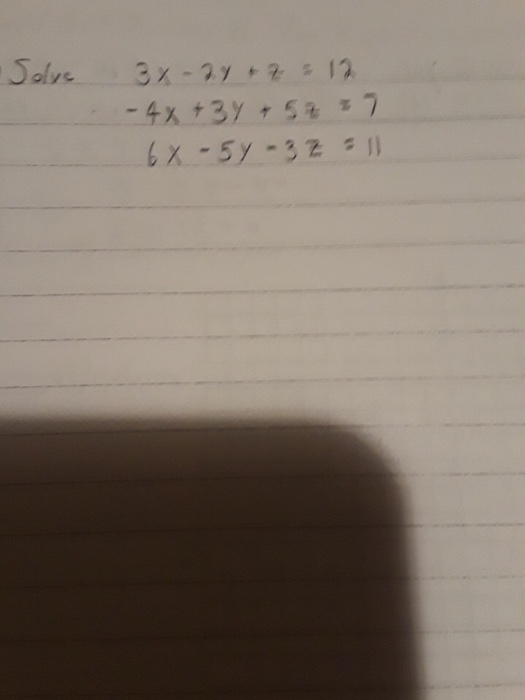 Solve 3x - 2y + z = 12
-4x + 3y + 5z = 7
6x - 5y - 3z = 11